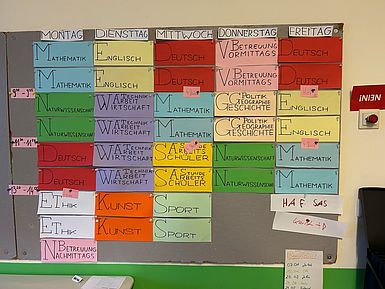 MONTAG DIENSTTAG MITTWOCH DONNERSTAG FREITAG
MATHEMATIK ENGLISCH DEUTSCH VBETREUUNG VORMITTAGS DEUTSCH
MATHEMATIK ENGLISCH DEUTSCH VBETREUUNG VORMITTAGS DEUTSCH
NATURWISSENSCHAFT WATECHNIK-ARBEIT WIRTSCHAFT MATHEMATIK GGPOLITIK GEOGRAPHIE GESCHICHTE ENGLISCH
NATURWISSENSCHAFT WATECHNIK-ARBEIT WIRTSCHAFT MATHEMATIK GGPOLITIK GEOGRAPHIE GESCHICHTE ENGLISCH
DEUTSCH WATECHNIK-ARBEIT WIRTSCHAFT SASTUNDE ARBEITS SCHÜLER NATURWISSENSCHAFT MATHEMATIK
DEUTSCH WATECHNIK-ARBEIT WIRTSCHAFT SASTUNDE ARBEITS SCHÜLER NATURWISSENSCHAFT MATHEMATIK
ETHIK KUNST SPORT HAF SAS
ETHIK KUNST SPORT
NBETREUUNG NACHMITTAGS
NEIN!